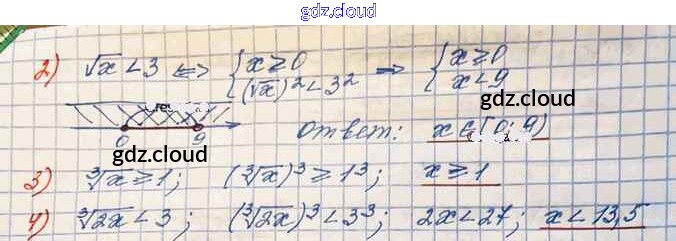 gdz.cloud
2) √x < 3 <=> { x ≥ 0 => { x ≥ 0
(√x)² < 3² x < 9
gdz.cloud
0 9 Ответ: x ∈ [0; 9)
gdz.cloud
3) ∛x ≥ 1; (∛x)³ ≥ 1³; x ≥ 1
4) ∛2x < 3; (∛2x)³ < 3³; 2x < 27; x < 13,5